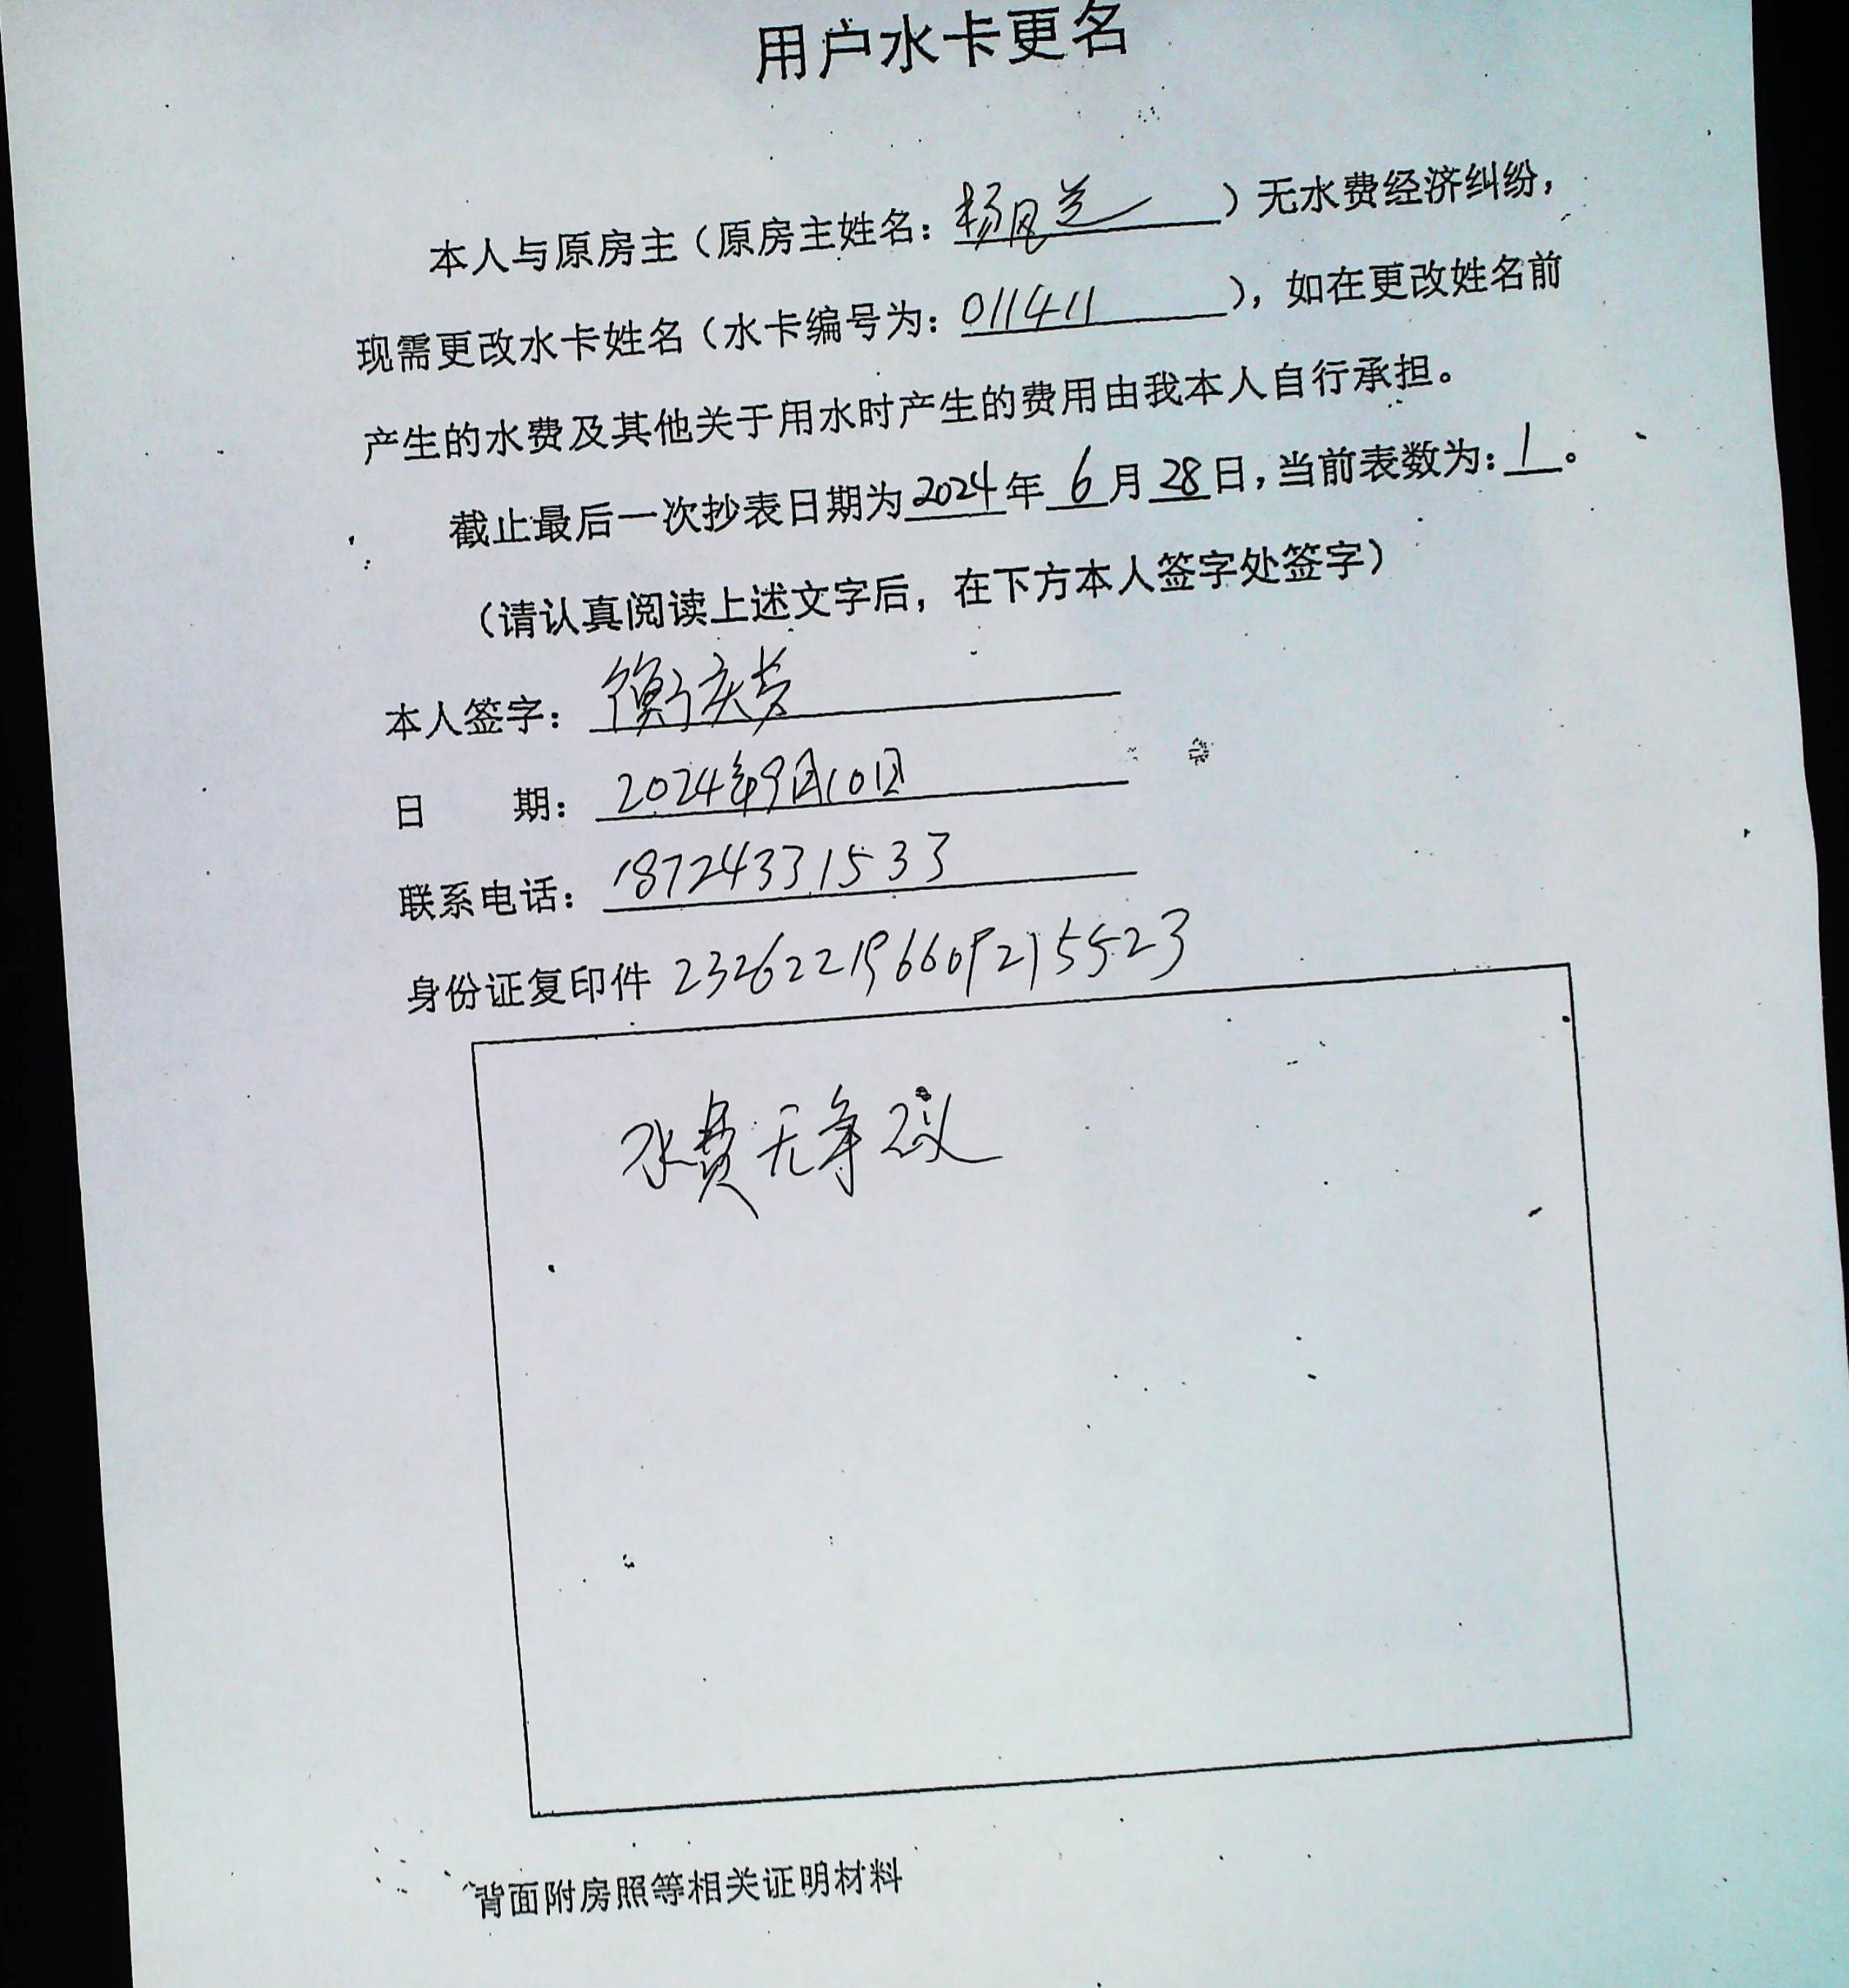 用户水卡更名
本人与原房主（原房主姓名：杨凤芝）无水费经济纠纷，
现需更改水卡姓名（水卡编号为：011411），如在更改姓名前
产生的水费及其他关于用水时产生的费用由我本人自行承担。
截止最后一次抄表日期为2024年6月28日，当前表数为：1。
（请认真阅读上述文字后，在下方本人签字处签字）
本人签字：衡庆芳
日 期：2024年9月10日
联系电话：18724331533
身份证复印件 232622196609215523
水费无争议
背面附房照等相关证明材料